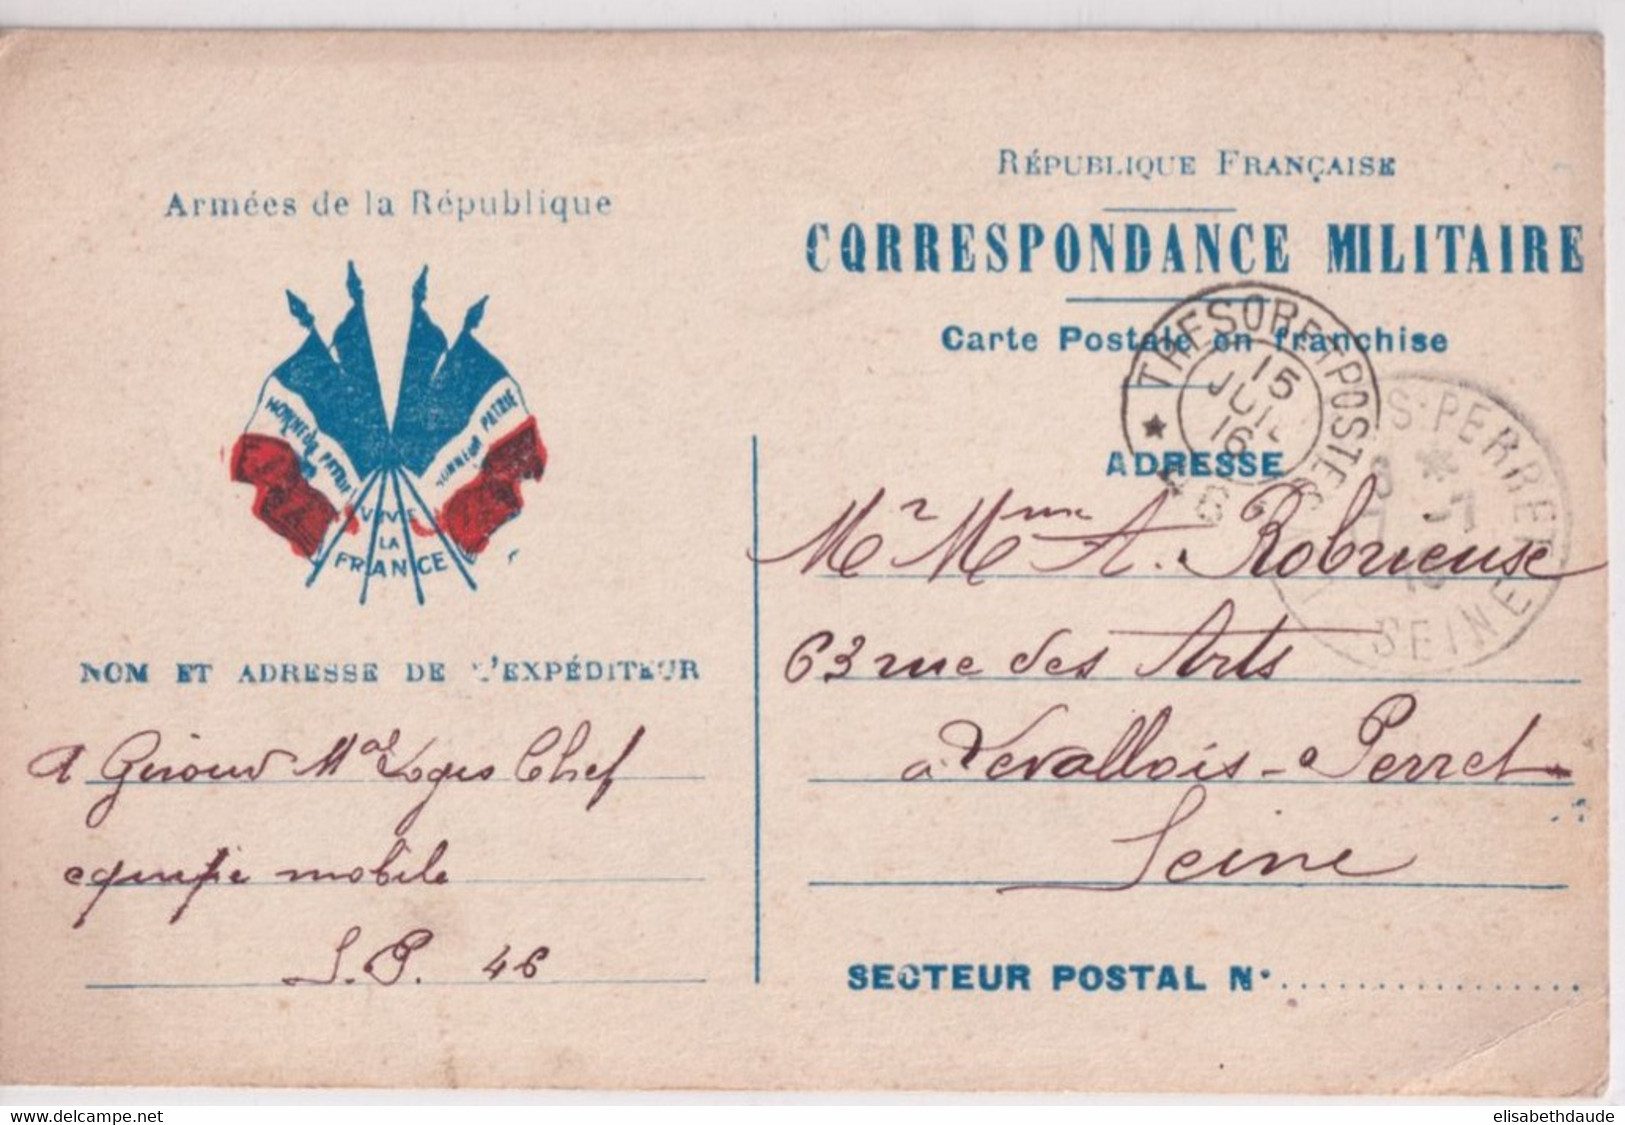 Armées de la République
HONNEUR PATRIE
HONNEUR PATRIE
VIVE
LA
FRANCE
NOM ET ADRESSE DE L'EXPÉDITEUR
A Giroud Mal Logis Chef
equipe mobile
S.P. 46
RÉPUBLIQUE FRANÇAISE
CORRESPONDANCE MILITAIRE
Carte Postale en franchise
TRESOR ET POSTES
15
JUIL
16
ADRESSE
S-PERRET
SEINE
Mr Mme A. Robrieuse
63 rue des Arts
a Levallois-Perret
Seine
SECTEUR POSTAL N°
delcampe.net
elisabethdaude